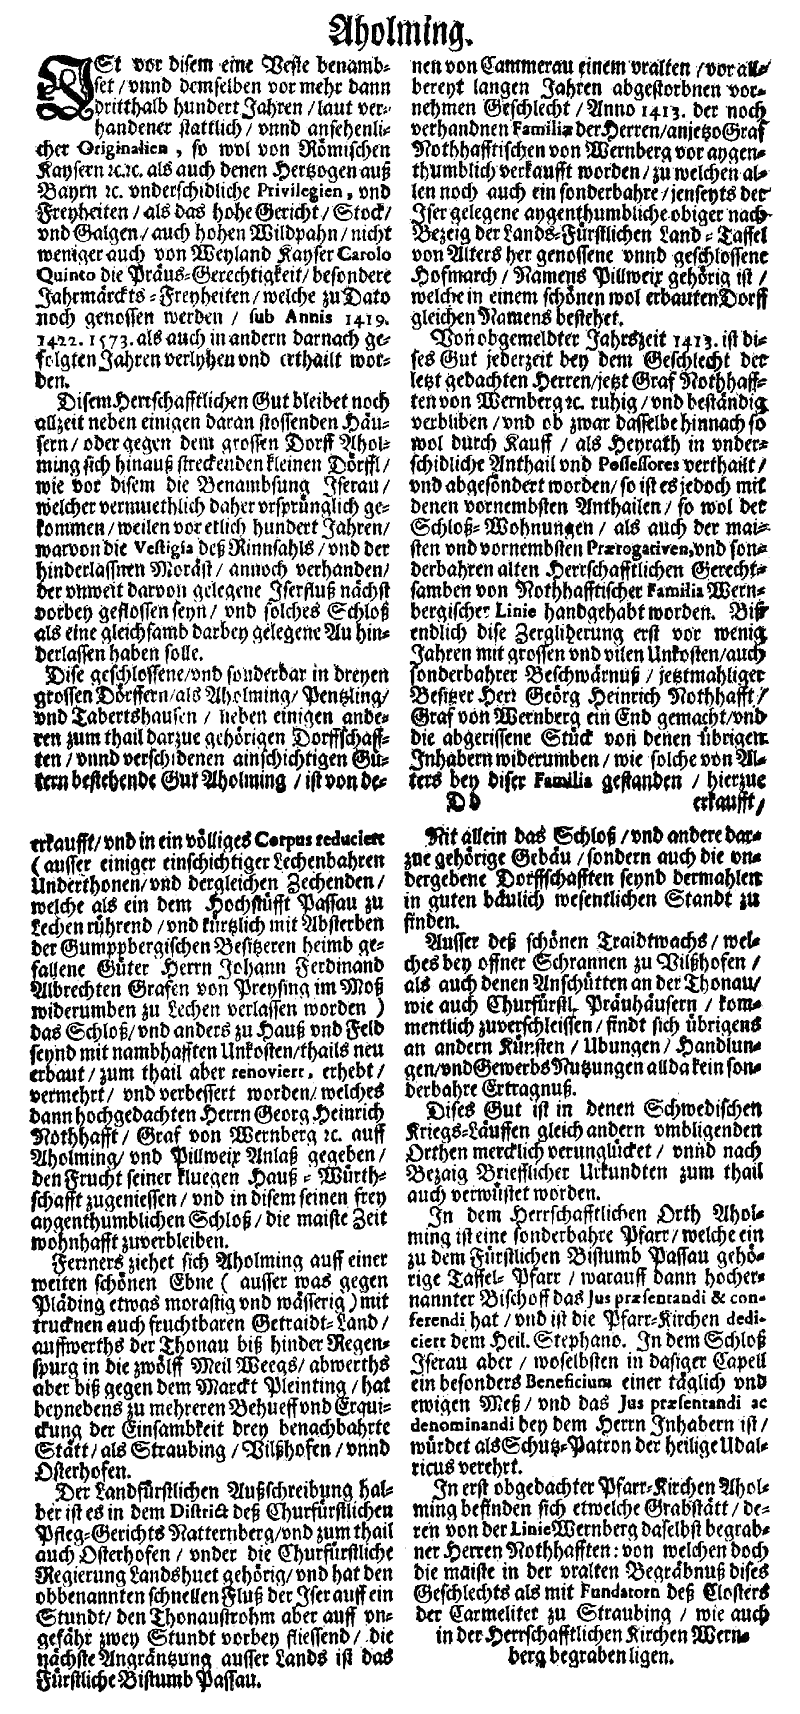 Aholming.
ISt vor disem eine Veste benamb-
set / vnnd demselben vor mehr dann
dritthalb hundert Jahren / laut ver-
handener stattlich / vnnd ansehenli-
cher Originalien, so wol von Römischen
Kaysern ꝛc. ꝛc. als auch denen Hertzogen auß
Bayrn ꝛc. vnderschidliche Privilegien, vnd
Freyheiten / als das hohe Gericht / Stock /
vnd Galgen / auch hohen Wildpahn / nicht
weniger auch von Weyland Kayser Carolo
Quinto die Präus-Gerechtigkeit / besondere
Jahrmärckts-Freyheiten / welche zu Dato
noch genossen werden / sub Annis 1419.
1422. 1573. als auch in andern darnach ge-
folgten Jahren verlyhen vnd erthailt wor-
den.
Disem Herrschafftlichen Gut bleibet noch
allzeit neben einigen daran stossenden Häu-
sern / oder gegen dem grossen Dorff Ahol-
ming sich hinauß streckenden kleinen Dörffl /
wie vor disem die Benambsung Iserau /
welcher vermuethlich daher vrsprünglich ge-
kommen / weilen vor etlich hundert Jahren /
warvon die Vestigia deß Rinnsahls / vnd der
hinderlassnen Moräst / annoch verhanden /
der vnweit darvon gelegene Iserfluß nächst
vorbey geflossen seyn / vnd solches Schloß
als eine gleichsamb darbey gelegene Au hin-
derlassen haben solle.
Dise geschlossene / vnd sonderbar in dreyen
grossen Dörffern / als Aholming / Pentzling /
vnd Tabertshausen / neben einigen ande-
ren zum thail darzue gehörigen Dorffschaff-
ten / vnnd verschidenen ainschichtigen Gü-
tern bestehende Gut Aholming / ist von de-
nen von Cammerau einem vralten / vor all-
bereyt langen Jahren abgestorbnen vor-
nehmen Geschlecht / Anno 1413. der noch
verhandnen Familiæ der Herren / anjetzo Graf
Nothhafftischen von Wernberg vor aygen-
thumblich verkaufft worden / zu welchen al-
len noch auch ein sonderbahre / jenseyts der
Iser gelegene aygenthumbliche obiger nach
Bezeig der Lands-Fürstlichen Land-Taffel
von Alters her genossene vnnd geschlossene
Hofmarch / Namens Pillweix gehörig ist /
welche in einem schönen wol erbauten Dorff
gleichen Namens bestehet.
Von obgemeldter Jahrszeit 1413. ist di-
ses Gut jederzeit bey dem Geschlecht der
letzt gedachten Herren / jetzt Graf Nothhaff-
ten von Wernberg ꝛc. ruhig / vnd beständig
verbliben / vnd ob zwar dasselbe hinnach so
wol durch Kauff / als Heyrath in vnder-
schidliche Anthail vnd Possessores verthailt /
vnd abgesondert worden / so ist es jedoch mit
denen vornembsten Anthailen / so wol der
Schloß-Wohnungen / als auch der mai-
sten vnd vornembsten Prærogativen, vnd son-
derbahren alten Herrschafftlichen Gerecht-
samben von Nothhafftischer Familia Wern-
bergischer Linie handgehabt worden. Biß
endlich dise Zergliderung erst vor wenig
Jahren mit grossen vnd vilen Unkosten / auch
sonderbahrer Beschwärnuß / jetztmahliger
Besitzer Herr Geörg Heinrich Nothhafft /
Graf von Wernberg ein End gemacht / vnd
die abgerissene Stück von denen übrigen
Inhabern widerumben / wie solche von Al-
ters bey diser Familia gestanden / hierzue
D d erkaufft /
erkaufft / vnd in ein völliges Corpus reduciert
( ausser einiger einschichtiger Lechenbahren
Underthonen / vnd dergleichen Zechenden /
welche als ein dem Hochstüfft Passau zu
Lechen rührend / vnd kürtzlich mit Absterben
der Gumppbergischen Besitzeren heimb ge-
fallene Güter Herrn Johann Ferdinand
Albrechten Grafen von Preysing im Moß
widerumben zu Lechen verlassen worden )
das Schloß / vnd anders zu Hauß vnd Feld
seynd mit nambhafften Unkosten / thails neu
erbaut / zum thail aber renoviert, erhebt /
vermehrt / vnd verbessert worden / welches
dann hochgedachten Herrn Georg Heinrich
Nothhafft / Graf von Wernberg ꝛc. auff
Aholming / vnd Pillweix Anlaß gegeben /
den Frucht seiner kluegen Hauß-Würth-
schafft zugeniessen / vnd in disem seinen frey
aygenthumblichen Schloß / die maiste Zeit
wohnhafft zuverbleiben.
Ferners ziehet sich Aholming auff einer
weiten schönen Ebne ( ausser was gegen
Pläding etwas morastig vnd wässerig ) mit
trucknen auch fruchtbaren Getraidt-Land /
auffwerths der Thonau biß hinder Regen-
spurg in die zwölff Meil Weegs / abwerths
aber biß gegen dem Marckt Pleinting / hat
beynebens zu mehreren Behueff vnd Erqui-
ckung der Einsambkeit drey benachbahrte
Stätt / als Straubing / Vilßhofen / vnnd
Osterhofen.
Der Landsfürstlichen Außschreibung hal-
ber ist es in dem District deß Churfürstlichen
Pfleg-Gerichts Natternberg / vnd zum thail
auch Osterhofen / vnder die Churfürstliche
Regierung Landshuet gehörig / vnd hat den
obbenannten schnellen Fluß der Iser auff ein
Stundt / den Thonaustrohm aber auff vn-
gefähr zwey Stundt vorbey fliessend / die
nächste Angräntzung ausser Lands ist das
Fürstliche Bistumb Passau.
Nit allein das Schloß / vnd andere dar-
zue gehörige Gebäu / sondern auch die vn-
dergebene Dorffschafften seynd dermahlen
in guten bäulich wesentlichen Standt zu
finden.
Ausser deß schönen Traidtwachs / wel-
ches bey offner Schrannen zu Vilßhofen /
als auch denen Anschütten an der Thonau /
wie auch Churfürstl. Präuhäusern / kom-
mentlich zuverschleissen / findt sich übrigens
an andern Künsten / Ubungen / Handlun-
gen / vnd Gewerbs Nutzungen allda kein son-
derbahre Ertragnuß.
Dises Gut ist in denen Schwedischen
Kriegs-Läuffen gleich andern vmbligenden
Orthen mercklich verunglücket / vnnd nach
Bezaig Briefflicher Urkundten zum thail
auch verwüstet worden.
In dem Herrschafftlichen Orth Ahol-
ming ist eine sonderbahre Pfarr / welche ein
zu dem Fürstlichen Bistumb Passau gehö-
rige Taffel-Pfarr / warauff dann hocher-
nannter Bischoff das Jus præsentandi & con-
ferendi hat / vnd ist die Pfarr-Kirchen dedi-
ciert dem Heil. Stephano. In dem Schloß
Iserau aber / woselbsten in dasiger Capell
ein besonders Beneficium einer täglich vnd
ewigen Meß / vnd das Jus præsentandi ac
denominandi bey dem Herrn Inhabern ist /
würdet als Schutz-Patron der heilige Udal-
ricus verehrt.
In erst obgedachter Pfarr-Kirchen Ahol-
ming befinden sich etwelche Grabstätt / de-
ren von der Linie Wernberg daselbst begrab-
ner Herren Nothhafften: von welchen doch
die maiste in der vralten Begräbnuß dises
Geschlechts als mit Fundatorn deß Closters
der Carmeliter zu Straubing / wie auch
in der Herrschafftlichen Kirchen Wern-
berg begraben ligen.